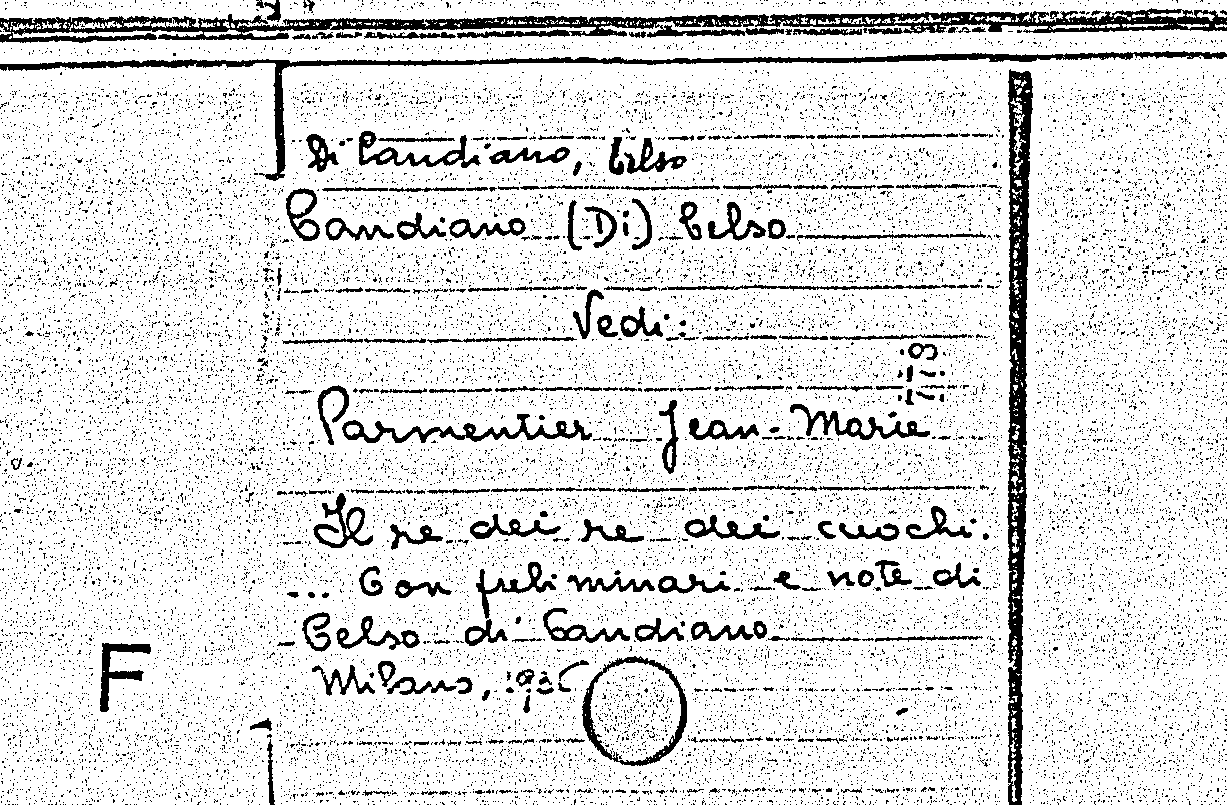 Di Candiano, Celso
Candiano (Di) Celso
Vedi:
Parmentier Jean-Marie
Il re dei re dei cuochi.
... Con preliminari e note di
Celso di Candiano.
Milano,
F